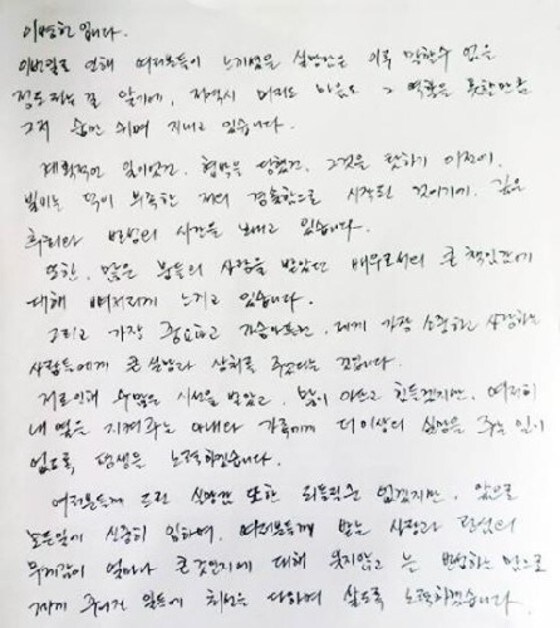 이병헌입니다.
이번일로 인해 여러분들이 느끼셨을 실망감은 이루 말할수 없을
정도라는 걸 알기에, 저역시 머리도 마음도 그 역할을 못할만큼
그저 숨만 쉬며 지내고 있습니다.
계획적인 일이었건, 협박을 당했건, 그것을 탓하기 이전에,
빌미는 덕이 부족한 저의 경솔함으로 시작된 것이기에, 깊은
후회와 반성의 시간을 보내고 있습니다.
또한, 많은 분들의 사랑을 받았던 배우로서의 큰 책임감에
대해 뼈저리게 느끼고 있습니다.
그리고 가장 중요하고 가슴아픈건, 제게 가장 소중하고 사랑하는
사람들에게 큰 실망과 상처를 주었다는 것입니다.
저로인해 수많은 시선을 받았고, 많이 아프고 힘든겠지만, 여전히
내 옆을 지켜주는 아내와 가족에게 더이상의 실망을 주는 일이
없도록 평생을 노력하겠습니다.
여러분들께 드린 실망감 또한 되돌릴순 없겠지만, 앞으로
모든일에 신중히 임하며, 여러분들께 받는 사랑과 관심의
무게감이 얼마나 큰것인지에 대해 잊지않고 늘 반성하는 맘으로
주어진 일들에 최선을 다하며 살도록 노력하겠습니다.